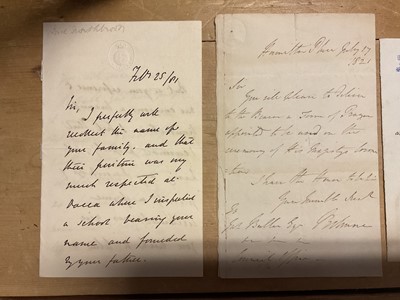 Feb 25/01
Sir,
I perfectly well
recollect the name of
your family, and that
their position was very
much respected at
Dacca where I inspected
a school bearing your
name and founded
by your father.
Hamilton Place July 17
1821
Sir
You will please to deliver
to the Bearer a Form of Prayer
appointed to be used on the
ceremony of His Majesty's Coro
nation
I have the Honor to be Sir
Your humble Serv
To
Butler Esq